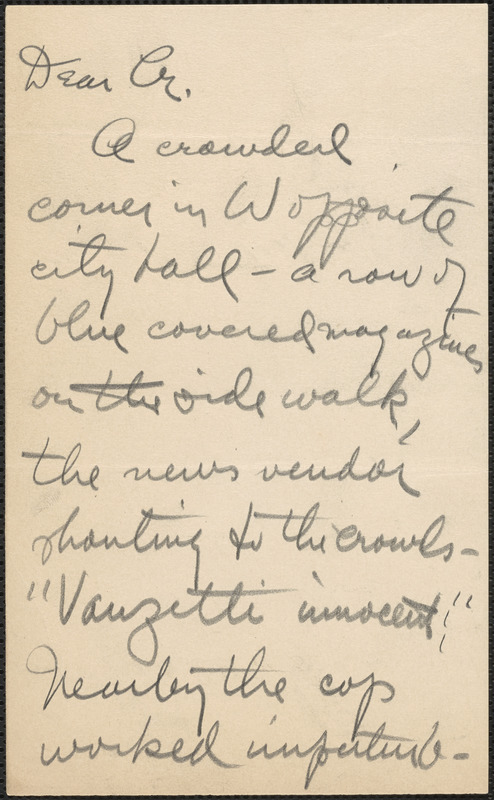 Dear Cr.
A crowded
corner in W opposite
city hall – a row of
blue covered magazines
on the side walk,
the news vendor
shouting to the crowds –
"Vanzetti innocent;"
Nearby the cop
worked imperturb-